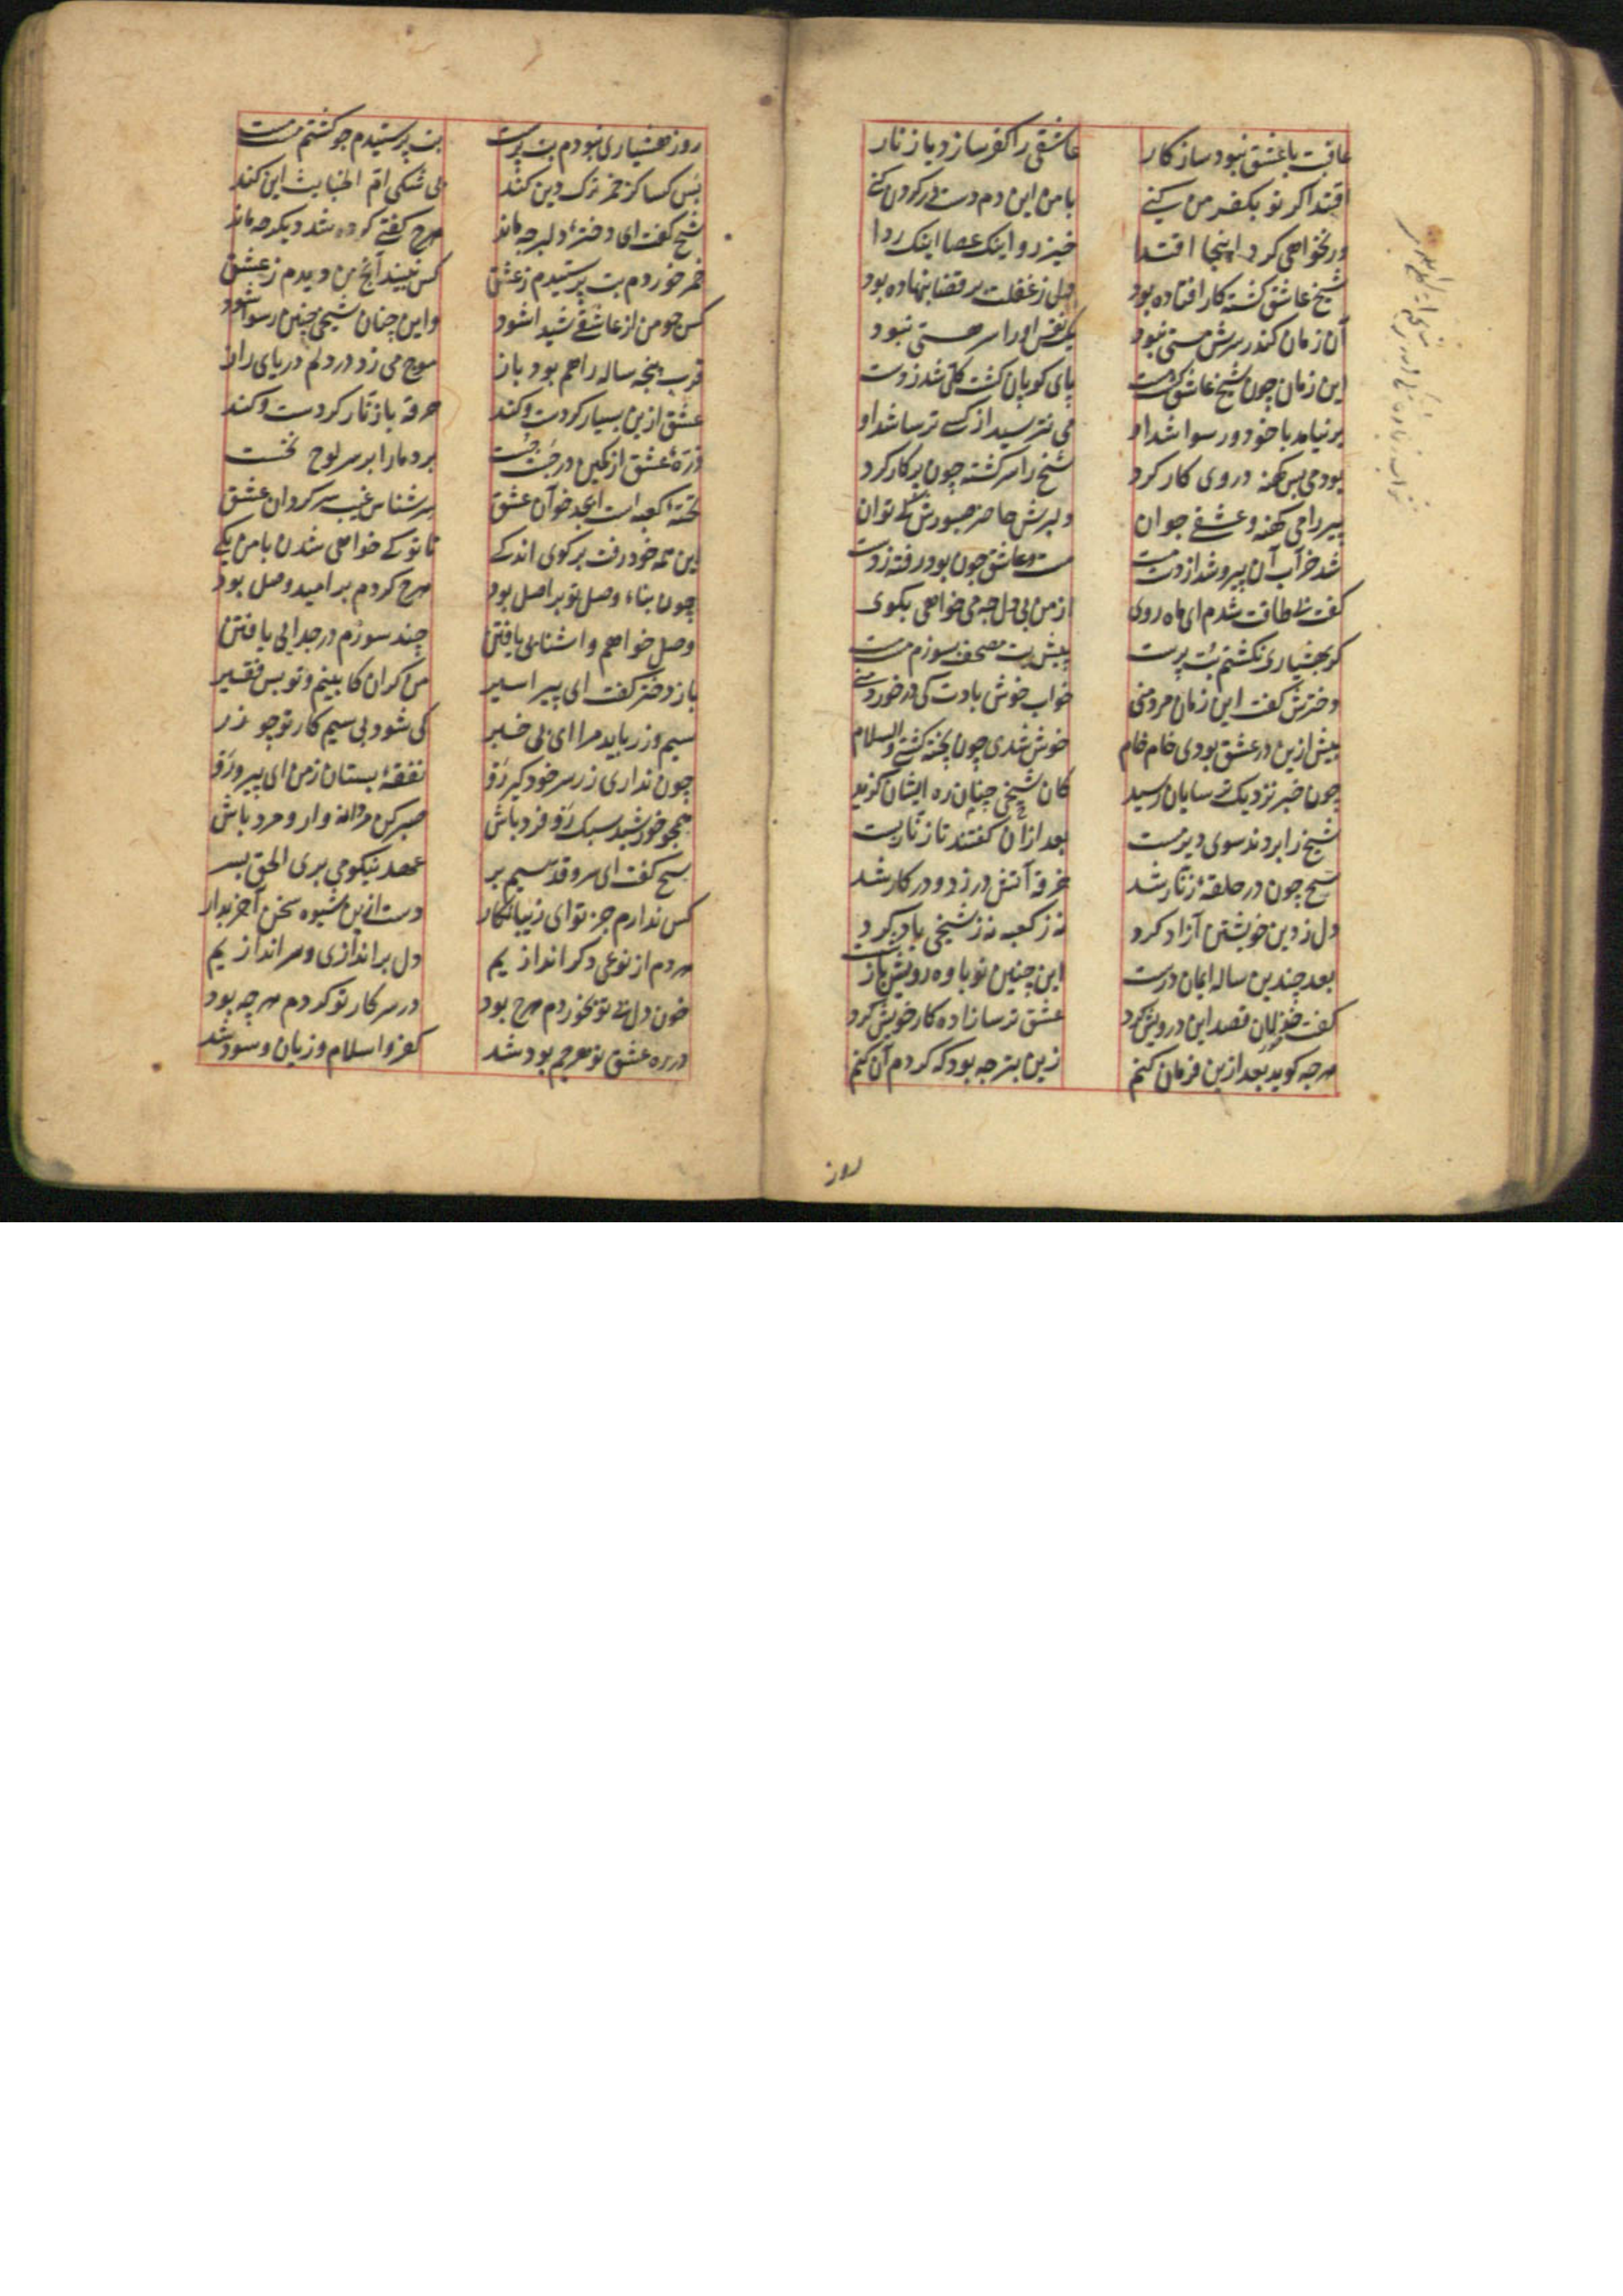 عاقبت با عشق نبود سازکار عاشقی را کفر سازد یاز نار
اقتدا گر تو بکفر من کنی با من این دم دست در گردن کنی
ور نخواهی کرد اینجا اقتدا خیز رو اینک عصا اینک ردا
شیخ عاشق کشته کار افتاده بود دل ز غفلت بر قضا بنهاده بود
آن زمان کندر سرش مستی نبود یک نفس او را سر هستی نبود
این زمان چون شیخ عاشق کشت مست پای کوبان کشت کلی شد ز دست
بر نیامد با خود و رسوا شد او می نترسید از کسی ترسا شد او
بود می بس کهنه در وی کار کرد شیخ را سرکشته چون پرکار کرد
پیر را می کهنه و عشقی جوان دلبرش حاضر صبوری کی توان
شد خراب آن پیر و شد از دست مست مست و عاشق چون بود رفته ز دست
کفت بی طاقت شدم ای ماه روی از من بی دل چه می خواهی بکوی
کر بهشیاری نکشتم بت پرست پیش بت مصحف بسوزم مست مست
دخترش کفت این زمان مرد منی خواب خوش بادت که در خورد منی
پیش ازین در عشق بودی خام خام خوش شدی چون پخته کشتی والسلام
چون خبر نزدیک ترسایان رسید کان شیخی چنان ره ایشان کزید
شیخ را بردند سوی دیر مست بعد از آن کفتند تا زنار بست
شیخ چون در حلقه زنار شد خرقه آتش در زد و در کار شد
دل ز دین خویشتن آزاد کرد نه ز کعبه نه ز شیخی یاد کرد
بعد چندین ساله ایمان درست این چنین نوباوه رویش باز شست
کفت خذلان قصد این درویش کرد عشق ترسازاده کار خویش کرد
هرچه کوید بعد ازین فرمان کنم زین بتر چه بود که کردم آن کنم
روز
روز هشیاری نبودم بت پرست بت پرستیدم چو کشتم مست مست
بس کسا کز خمر ترک دین کند بی شکی ام الخبایث این کند
شیخ کفت ای دختر دلبر چه ماند هرچ کفتی کرده شد دیکر چه ماند
خمر خوردم بت پرستیدم ز عشق کس نبیند آنچ من دیدم ز عشق
کس چو من از عاشقی شیدا شود واین چنان شیخی چنین رسوا شود
قرب پنجه ساله راهم بود باز موج می زد در دلم دریای راز
عشق ازین بسیار کردست و کند خرقه با زنار کردست و کند
ذره عشق از کمین در جست چست برد ما را بر سر لوح نخست
تخته کعبه است ابجد خوان عشق سرشناس غیب سرکردان عشق
این همه خود رفت برکوی اندکی تا تو کی خواهی شدن با من یکی
چون بناء وصل تو بر اصل بود هرچ کردم بر امید وصل بود
وصل خواهم و آشنایی یافتن چند سوزم در جدایی یافتن
باز دختر کفت ای پیر اسیر من کران کابینم و تو بس فقیر
سیم و زر باید مرا ای بی خبر کی شود بی سیم کار تو چو زر
چون نداری زر سر خود کیر رو نفقه بستان ز من ای پیر و رو
همچو خورشید سبک رو فرد باش صبر کن مردانه وار و مرد باش
شیخ کفت ای سرو قد سیم بر عهد نیکو می بری الحق بسر
کس ندارم جز تو ای زیبا نکار دست ازین شیوه سخن آخر بدار
هر دم از نوعی دکر اندازیم دل براندازی و سر اندازیم
خون دل بی تو بخوردم هرچ بود در سر کار تو کردم هرچه بود
در ره عشق تو هرچم بود شد کفر و اسلام و زیان و سود شد